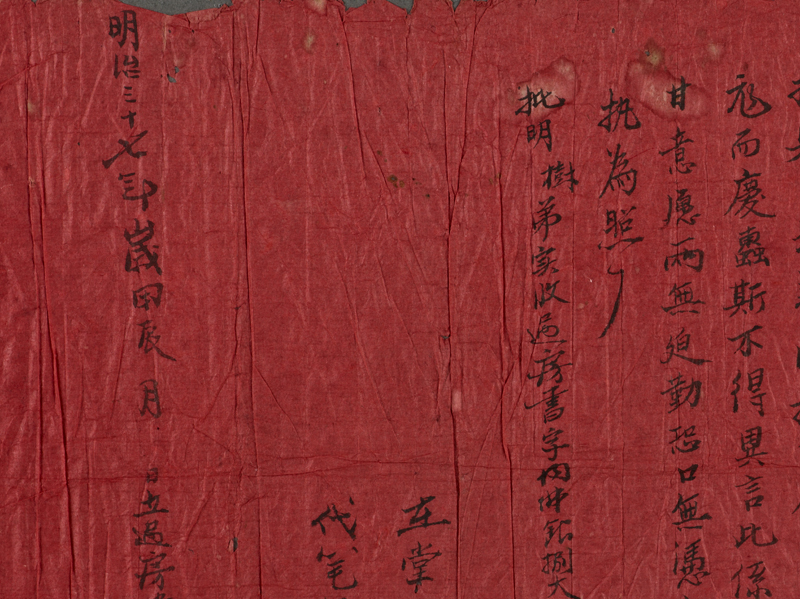 而慶螽斯不得異言此係
甘意愿兩無迫勒恐口無憑
执為照
批明樹弟实收過房書字內佛銀捌大
在堂
代筆
明治三十七年歲甲辰 月 日立過房